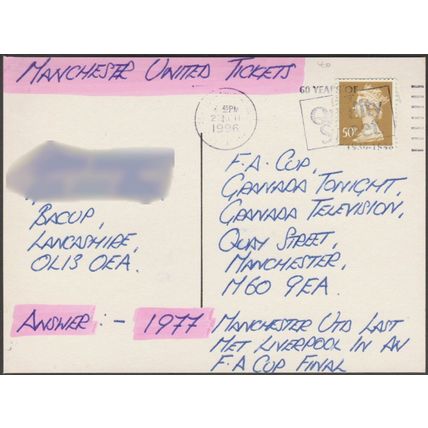 MANCHESTER UNITED TICKETS
60 YEARS OF
1996
50P
BACUP,
LANCASHIRE,
OL13 0EA.
F.A. CUP,
GRANADA TONIGHT,
GRANADA TELEVISION,
QUAY STREET,
MANCHESTER,
M60 9EA.
ANSWER :- 1977
MANCHESTER UTD LAST
MET LIVERPOOL IN AN
F.A CUP FINAL